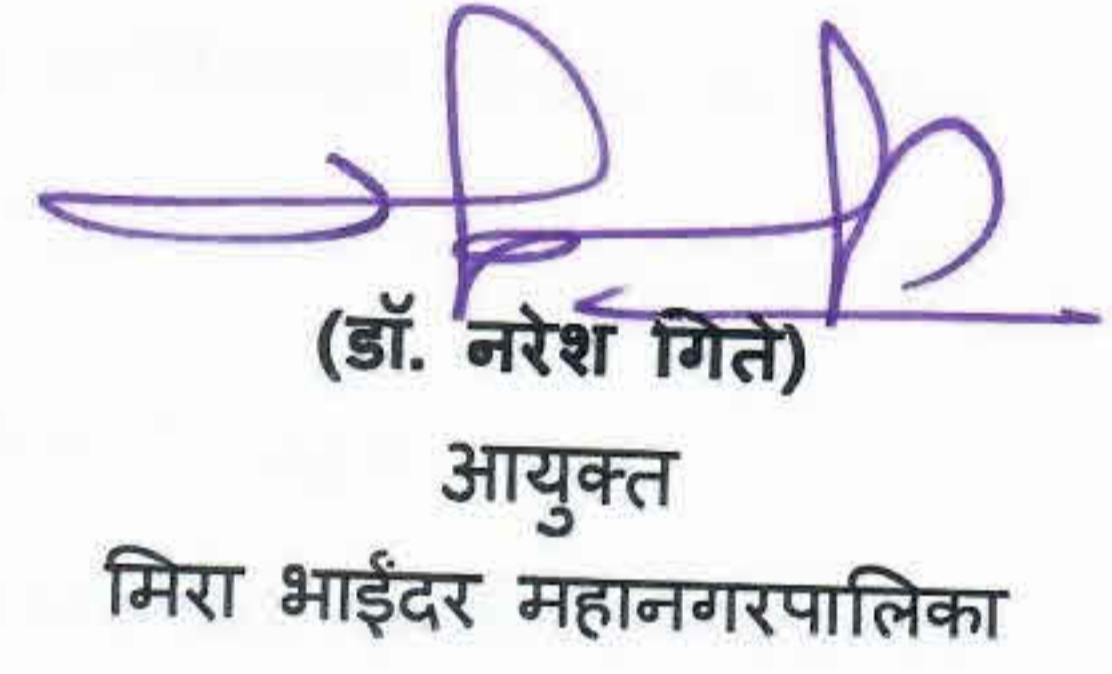 (डॉ. नरेश गिते)
आयुक्त
मिरा भाईंदर महानगरपालिका